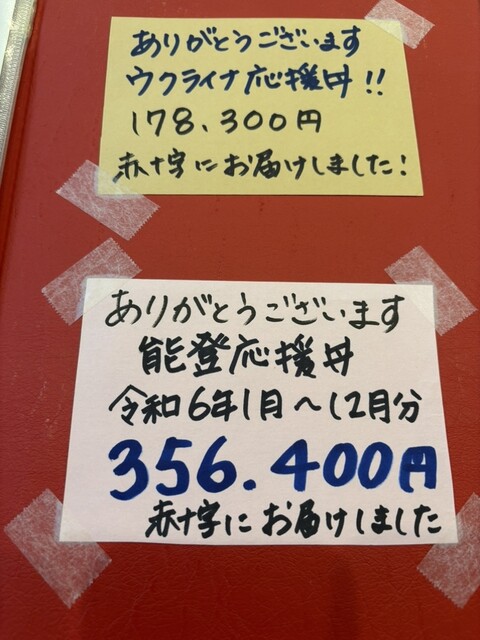 ありがとうございます
ウクライナ応援丼!!
178.300円
赤十字にお届けしました!
ありがとうございます
能登応援丼
令和6年1月〜12月分
356.400円
赤十字にお届けしました